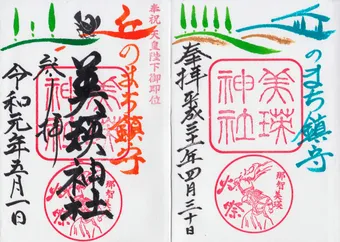 奉祝天皇陛下御即位
丘のまち鎮守
美瑛神社
参拝
令和元年五月一日
美瑛
神社
那智美瑛
火祭
丘のまち鎮守
美瑛
神社
奉拝
平成三十一年四月三十日
那智美瑛
火祭